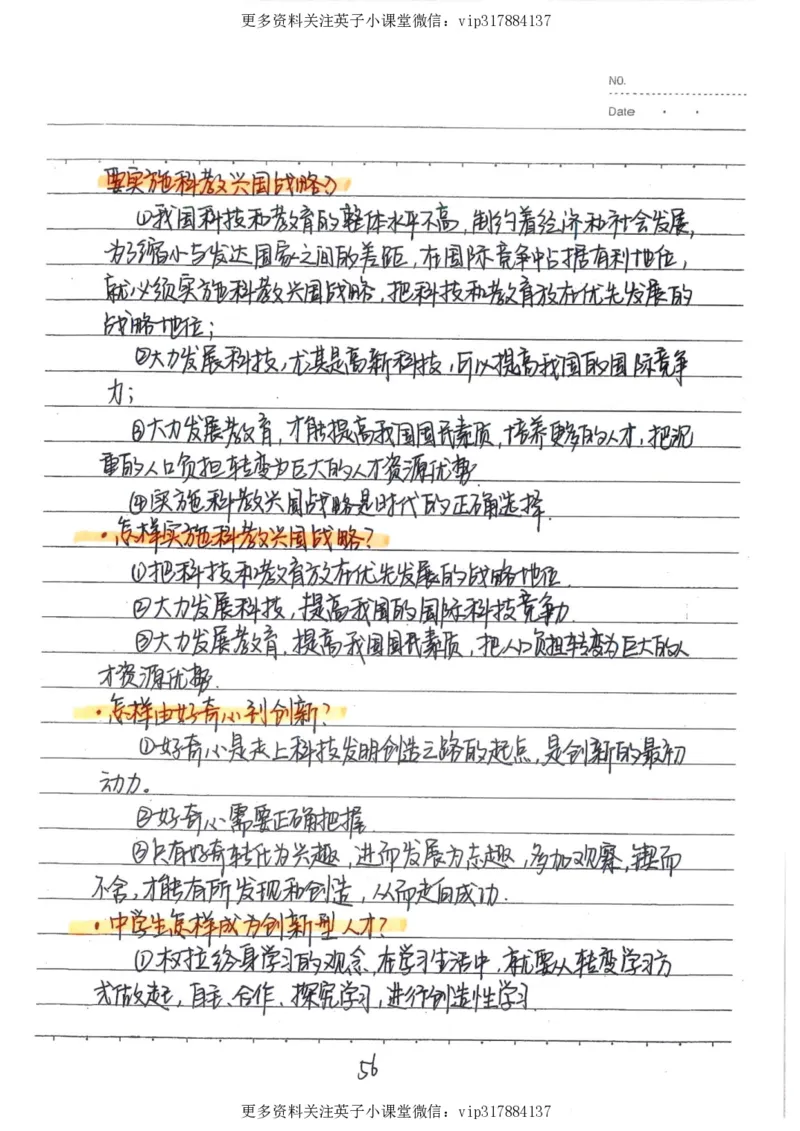 更多资料关注英子小课堂微信：vip317884137
NO.
Date
要实施科教兴国战略?
①我国科技和教育的整体水平不高,制约着经济和社会发展,
为了缩小与发达国家之间的差距,在国际竞争中占据有利地位,
就必须实施科教兴国战略,把科技和教育放在优先发展的
战略地位;
②大力发展科技,尤其是高新科技,可以提高我国的国际竞争
力;
③大力发展教育,才能提高我国国民素质,培养更多的人才,把沉
重的人口负担转变为巨大的人才资源优势.
④实施科教兴国战略是时代的正确选择.
·怎样实施科教兴国战略?
①把科技和教育放在优先发展的战略地位.
②大力发展科技,提高我国的国际科技竞争力.
③大力发展教育,提高我国国民素质,把人口负担转变为巨大的人
才资源优势.
·怎样由好奇心到创新?
①好奇心是走上科技发明创造之路的起点,是创新的最初
动力。
②好奇心需要正确把握.
③只有好奇转化为兴趣,进而发展为志趣,多加观察,锲而
不舍,才能有所发现和创造,从而走向成功.
·中学生怎样成为创新型人才?
①权拉终身学习的观念,在学习生活中,就要从转变学习方
式做起,自主、合作、探究学习,进行创造性学习.
56
更多资料关注英子小课堂微信：vip317884137